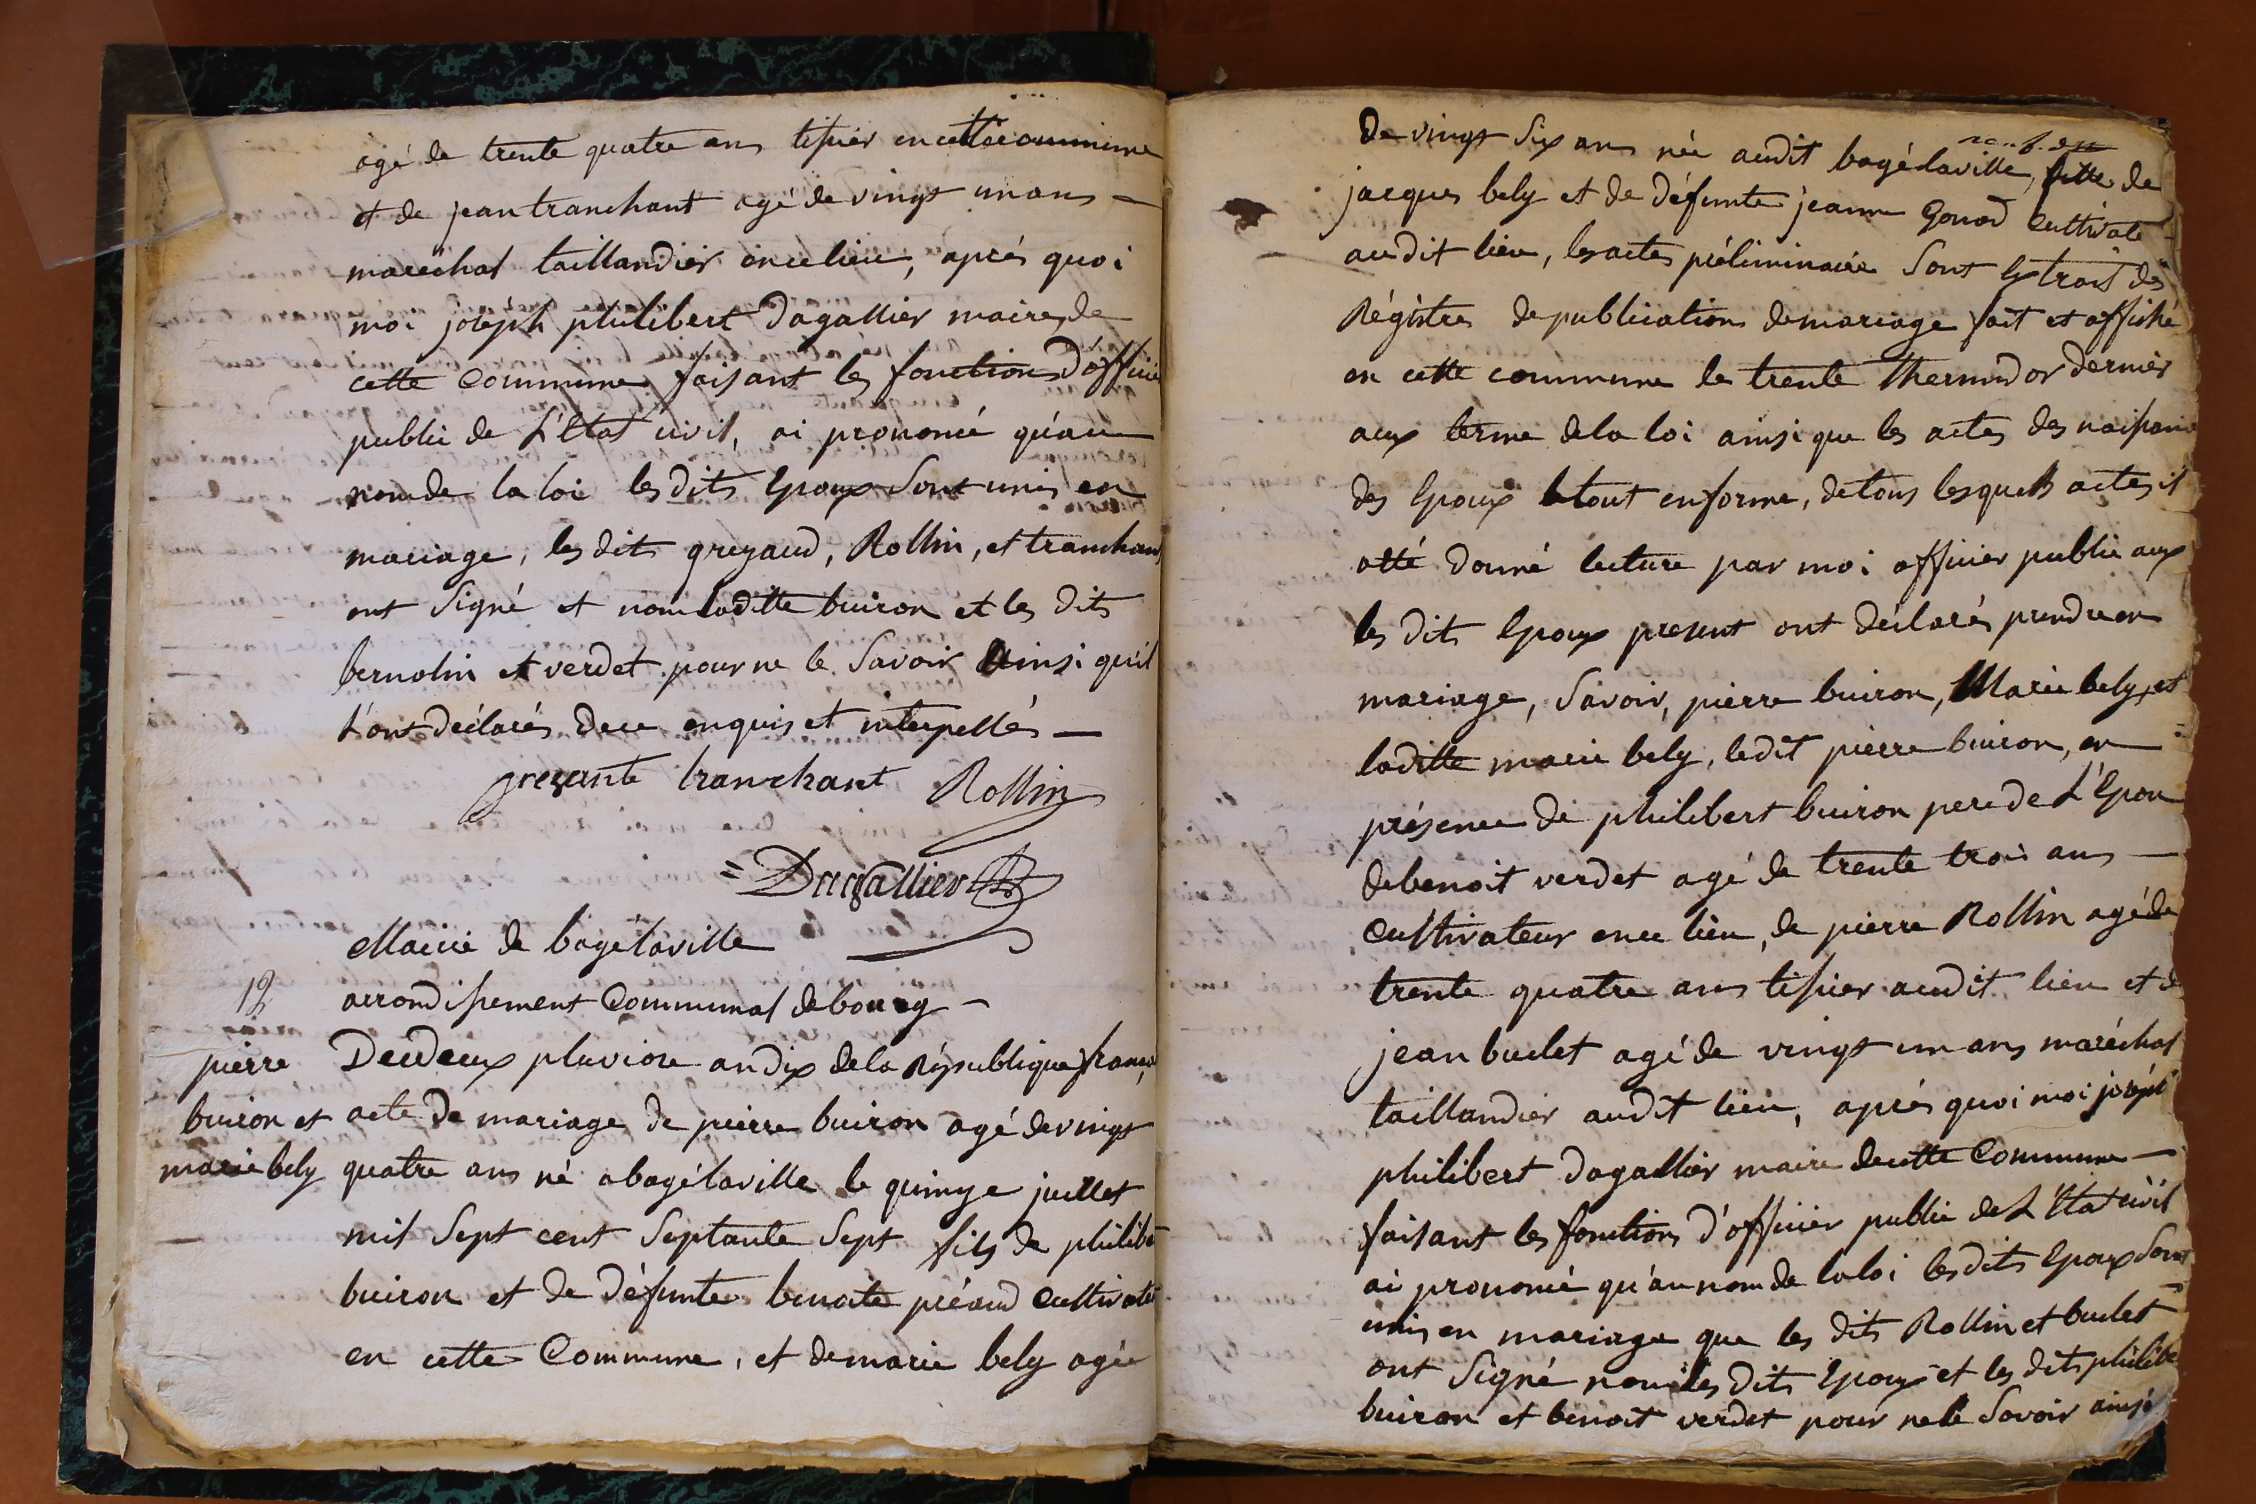 agé de trente quatre ans tissier en cette commune
et de jean tranchant agé de vingt un ans —
maréchal taillandier en ce lieu, aprés quoi
moi joseph philibert Dagallier maire de
cette Commune faisant les fonctions D'officier
public de L'Etat civil, ai prononcé qu'au
nom de la loi les dits Epoux Sont unis en
mariage, les dits grezaud, Rollin, et tranchant
ont Signé et nom laditte buiron et les dits
bernolin et verdet pour ne le Savoir Ainsi qu'il
L'ont déclarés de ce enquis et interpellés —
grezante tranchant Rollin
= Dagallier
Mairie de bagélaville
12 arrondissement Communal de bourg —
pierre buiron et marie bely
Du deux pluviose an dix de la République franc
acte De mariage de pierre buiron agé de vingt
quatre ans né a bagélaville le quinze juillet
mil Sept cent Septante Sept fils de philibe
buiron et de Défunte benoite préaud Cultivate
en cette Commune, et de marie bely agée
De vingt Six ans née audit bagélaville, fille de
jacques bely et de Défunte jeanne Gonod Cultivate
audit lieu, les actes préliminaire Sont Extrait des
Régistres de publications de mariage fait et affiché
en cette commune le trente thermidor dernier
aux terme de la loi ainsi que les actes des naissance
des Epoux le tout en forme, de tous lesquels actes il
a été Donné lecture par moi officier public aux
les dits Epoux present ont déclarés prendre en
mariage, Savoir, pierre buiron, Marie bely, et
laditte marie bely, ledit pierre buiron, en
présence de philibert buiron pere de L'Epou
de benoit verdet agé de trente trois ans —
Cultivateur en ce lieu, de pierre Rollin agé de
trente quatre ans tissier audit lieu et de
jean buclet agé de vingt un ans maréchal
taillandier audit lieu, aprés quoi moi joseph
philibert Dagallier maire de cette Commune —
faisant les fonctions d'officier public de L'Etat civil
ai prononcé qu'au nom de la loi les dits Epoux Sont
unis en mariage que les dits Rollin et buclet
ont Signé nom les dits Epoux et les dits philibe
buiron et benoit verdet pour ne le Savoir ainsi